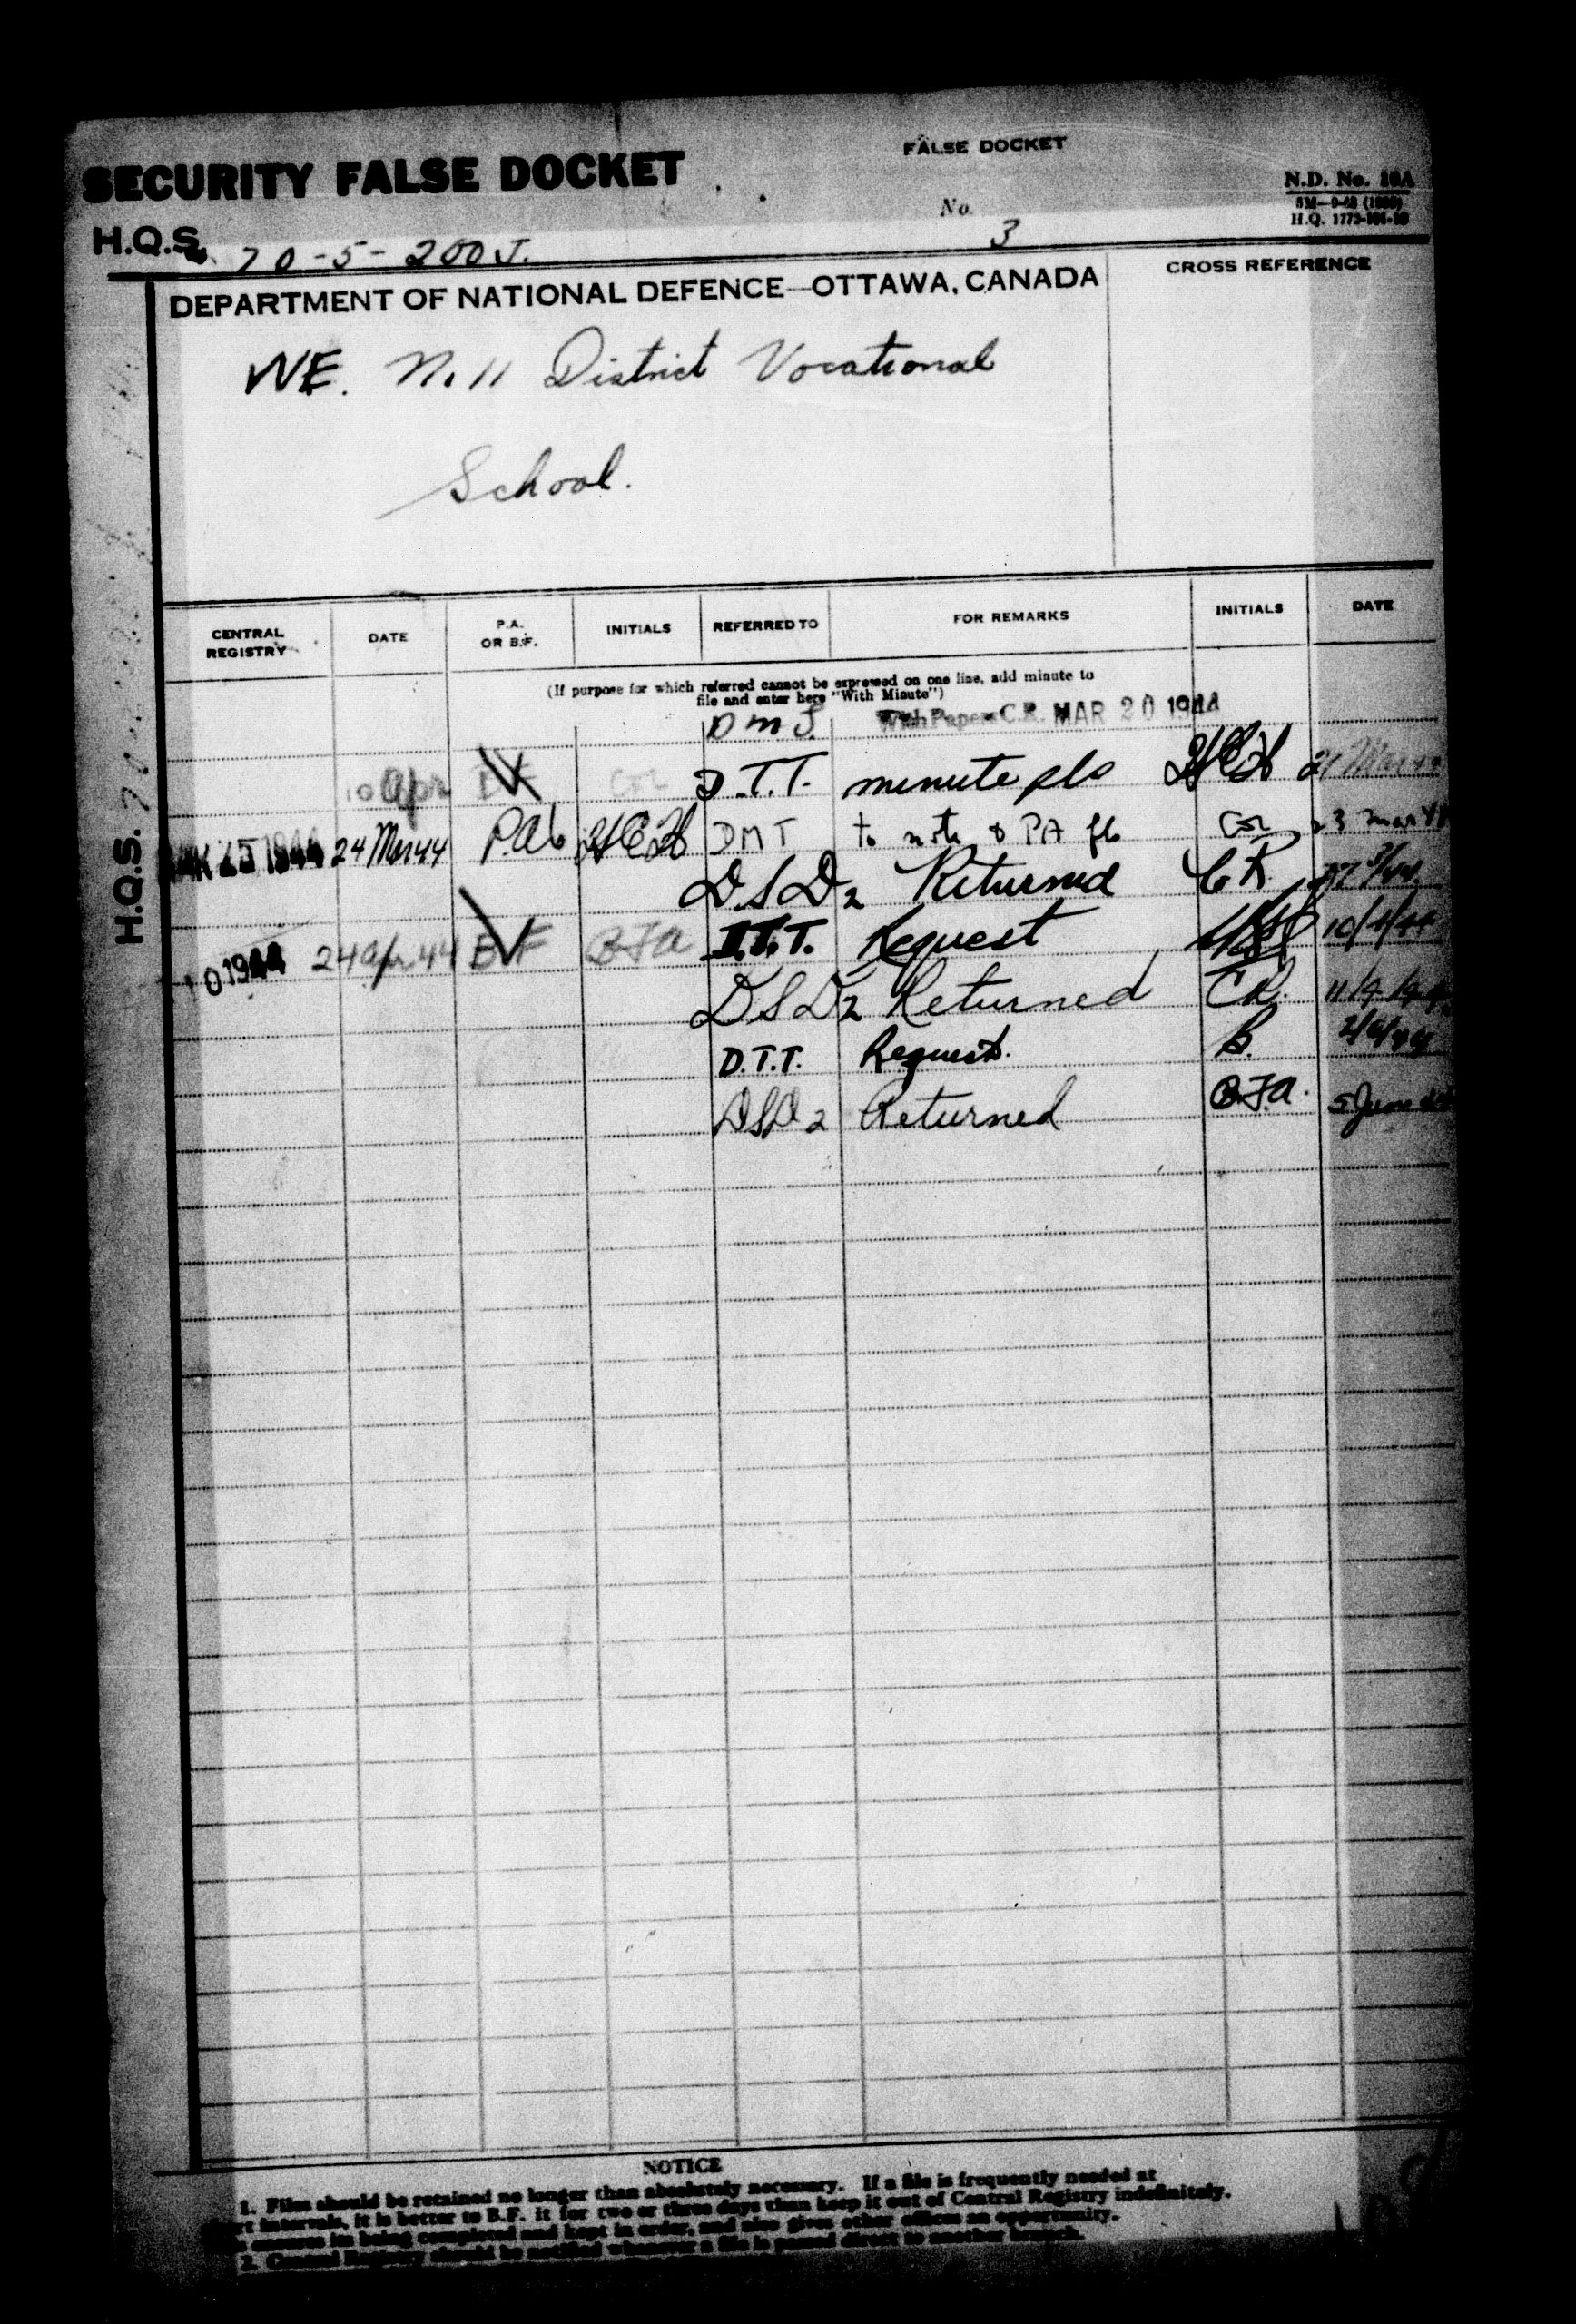 FALSE DOCKET
SECURITY FALSE DOCKET
N.D. No. 10A
No. 3
H.Q. 1772-
H.Q.S. 70-5-200 J.
DEPARTMENT OF NATIONAL DEFENCE—OTTAWA, CANADA
CROSS REFERENCE
WE. No. 11 District Vocational
School.
CENTRAL REGISTRY DATE P.A. OR B.F. INITIALS REFERRED TO FOR REMARKS INITIALS DATE
(If purpose for which referred cannot be expressed on one line, add minute to
file and enter here "With Minute")
With Papers C.R. MAR 20 1944
10 Apr BF D.T.T. minute pls 21 Mar
MAR 25 1944 24 Mar 44 P.A. DMT to note & PA 23 Mar 44
DSD2 Returned CR.
10 1944 24 Apr 44 BF BJA D.T.T. Request 10/4/44
DSD2 Returned CR. 11/4/44
D.T.T. Request. B. 2/6/44
DSD2 Returned BJA. 5 June
H.Q.S. 70
NOTICE
1. Files should be retained no longer than absolutely necessary. If a file is frequently needed at
short intervals, it is better to B.F. it for two or three days than keep it out of Central Registry indefinitely.
being completed and kept in order, and also gives other offices an opportunity.
2. Central Registry should be notified whenever a file is passed direct to another branch.